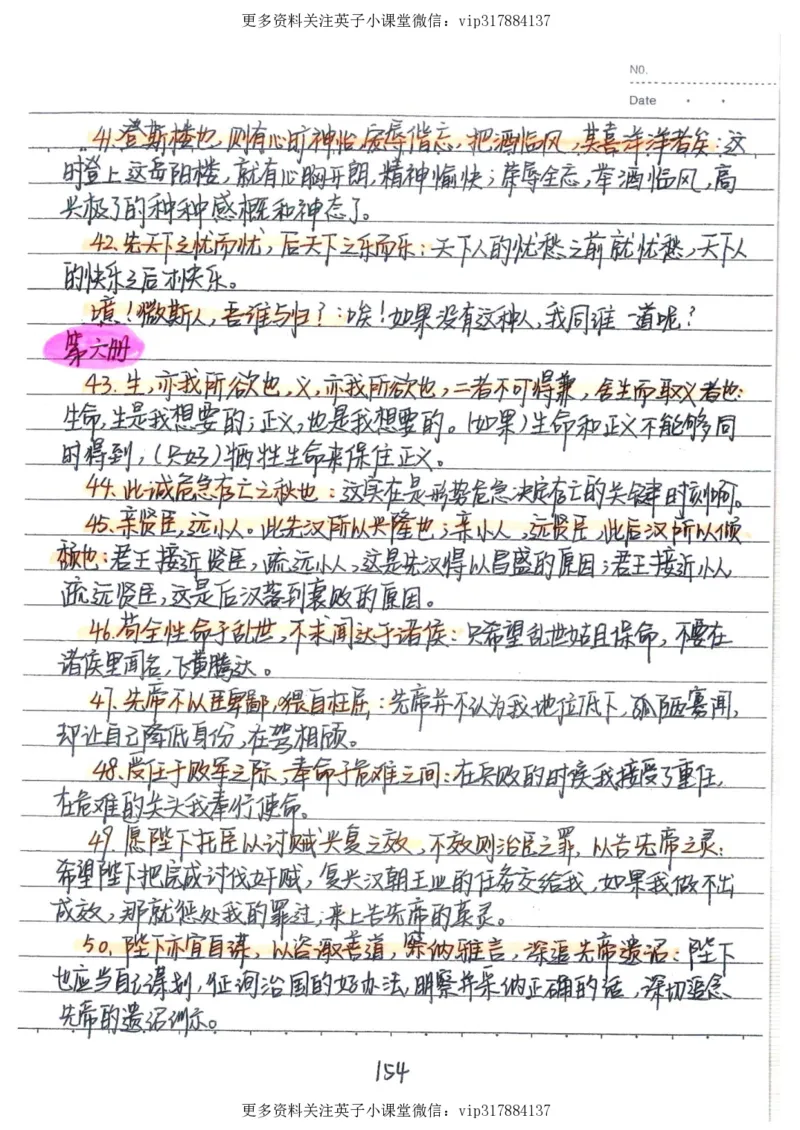 更多资料关注英子小课堂微信：vip317884137
NO.
Date
41.登斯楼也，则有心旷神怡，宠辱偕忘，把酒临风，其喜洋洋者矣：这
时登上这岳阳楼，就有心胸开朗，精神愉快；荣辱全忘，举酒临风，高
兴极了的种种感概和神态了。
42.先天下之忧而忧，后天下之乐而乐：天下人的忧愁之前就忧愁，天下人
的快乐之后才快乐。
噫！微斯人，吾谁与归？：唉！如果没有这种人，我同谁一道呢？
第六册
43.生，亦我所欲也，义，亦我所欲也，二者不可得兼，舍生而取义者也：
生命，生是我想要的；正义，也是我想要的。（如果）生命和正义不能够同
时得到，（只好）牺牲生命来保住正义。
44.此诚危急存亡之秋也：这实在是形势危急决定存亡的关键时刻啊。
45.亲贤臣，远小人。此先汉所以兴隆也；亲小人，远贤臣，此后汉所以倾
颓也：君王接近贤臣，疏远小人，这是先汉得以昌盛的原因；君王接近小人
疏远贤臣，这是后汉落到衰败的原因。
46.苟全性命于乱世，不求闻达于诸侯：只希望乱世姑且保命，不要在
诸侯里闻名，飞黄腾达。
47.先帝不以臣卑鄙，猥自枉屈：先帝并不认为我地位低下，孤陋寡闻，
却让自己降低身份，在驾相顾。
48.受任于败军之际，奉命于危难之间：在兵败的时候我接受了重任，
在危难的关头我奉行使命。
49.愿陛下托臣以讨贼兴复之效，不效则治臣之罪，以告先帝之灵：
希望陛下把完成讨伐奸贼，复兴汉朝王业的任务交给我，如果我做不出
成效，那就惩处我的罪过，来上告先帝的英灵。
50.陛下亦宜自谋，以咨诹善道，察纳雅言，深追先帝遗诏：陛下
也应当自己谋划，征询治国的好办法，明察并采纳正确的话，深切追念
先帝的遗诏训示。
154
更多资料关注英子小课堂微信：vip317884137